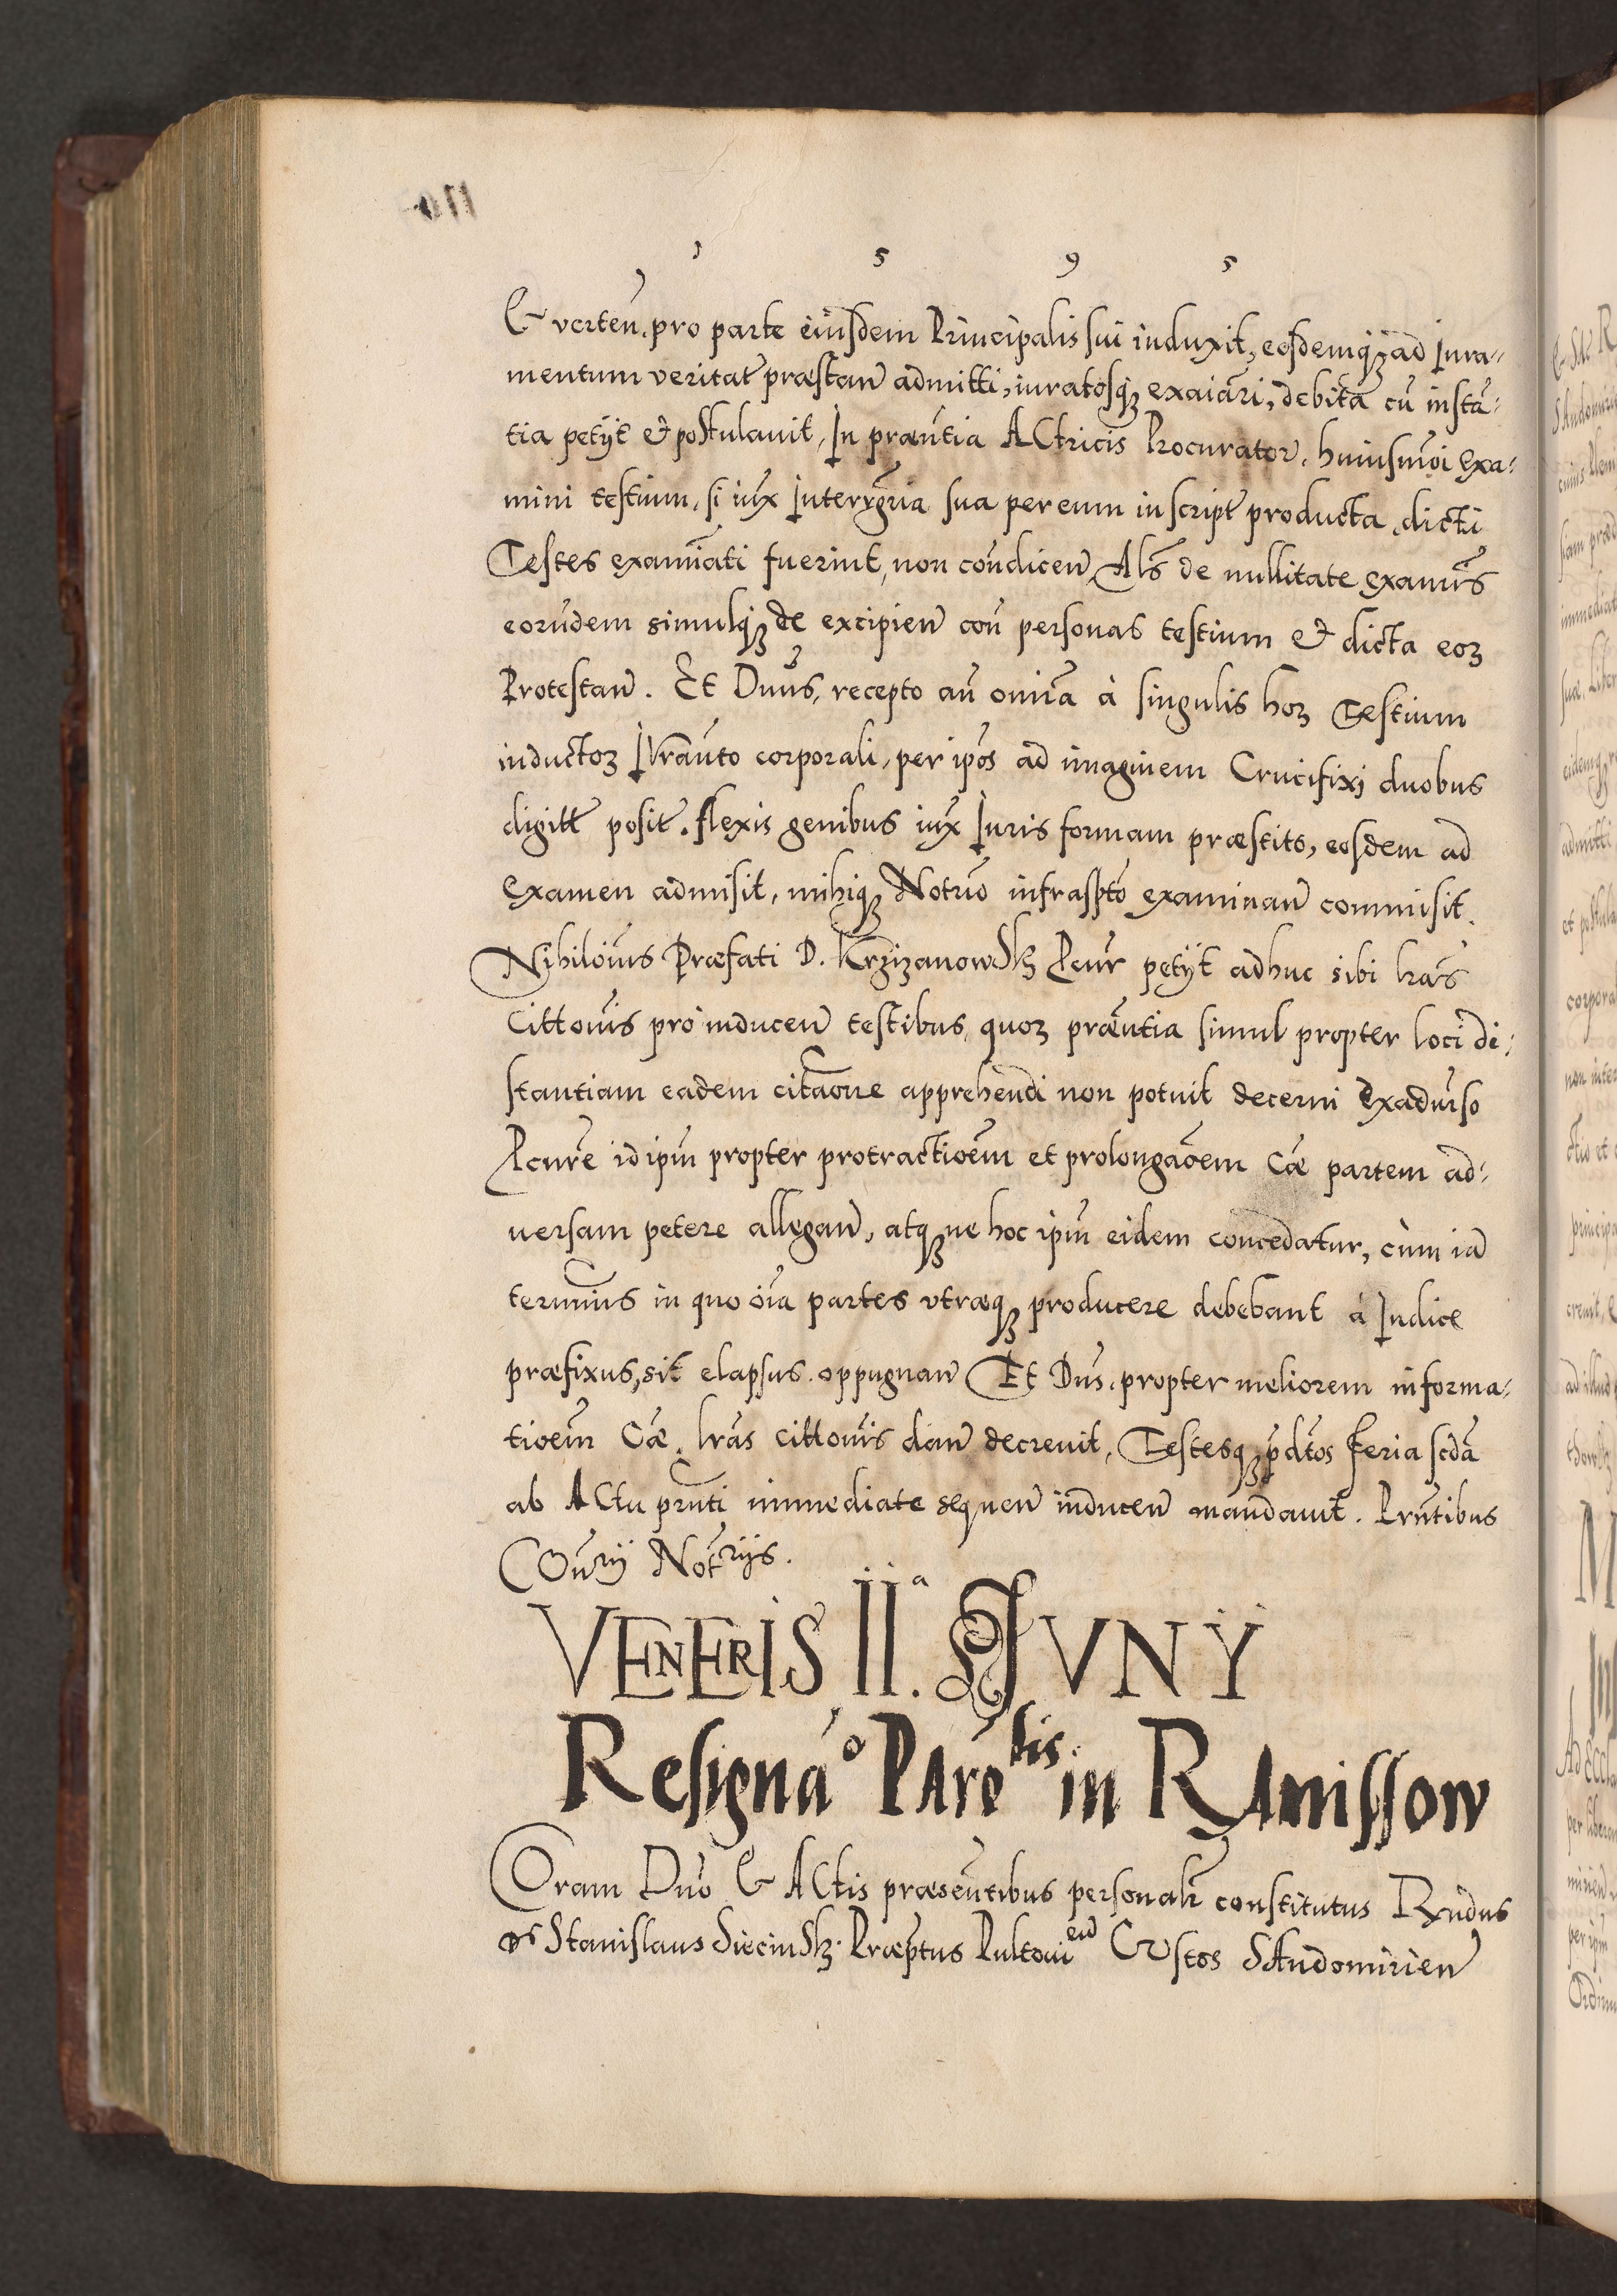 1 5 9 5
& verteñ. pro parte eiusdem Principalis sui induxit, eosdemqꝫ ad Iura-
mentum veritat̃ præstañ admitti, iuratosqꝫ exaiãri, debita cũ instã-
tia petijt et postulavit, In præñtia Actricis Procurator̃. huiusmõi Exa-
mini testium, si iux̃ Interrgr̃ia sua per eum in script̃ producta, dicti
Testes examiati fuerint, non cõndiceñ Als̃ de nullitate examis̃
eorũdem simulqꝫ de excipieñ coñ personas testium et dicta eoꝝ
Protestañ. Et Dñus, recepto añ omĩa à singulis hoꝝ Testium
inductoꝝ Iurañto corporali, per ipõs ad imaginem Crucifixi duobus
digitt̃ posit̃. flexis genibus iux̃ Iuris formam præstito, eosdem ad
Examen admisit, mihiqꝫ Notrĩo infrasptõ examinañ commisit.
Nihilõius Præfati D. Krzizanowskȝ Pcur̃ petijt adhuc sibi lrãs
Cittoñis pro induceñ testibus, quoꝝ præñtia simul propter loci di-
stantiam eadem citãone apprehendi non potuit decerni Exadũrso
Pcurẽ id ipm̃ propter protractioẽm et prolongãoem Cãe partem ad-
uersam petere allegañ, atqꝫ ne hoc ipm̃ eidem concedatur, cùm iã
terminus in quo oĩa partes vtræqꝫ producere debebant à Iudice
præfixus, sit elapsus. oppugnañ Et Dñs. propter meliorem informa-
tioẽm Cãe. lrãs cittoñis dañ decrevit, Testesqꝫ p̃dtos Feria scdã
ab Actu prñti immediate sequeñ induceñ mandavit. Prñtibus
Coñrij Notrijs.
VENERIS II.a IVNY
Resignão Parõtis in Ranissow
Coram Dño & Actis præsentibus personalr̃ constitutus Rñdus
Ds Stanislaus Siecinskȝ. Præp̃tus Pultovieñ Custos Sandomirieñ